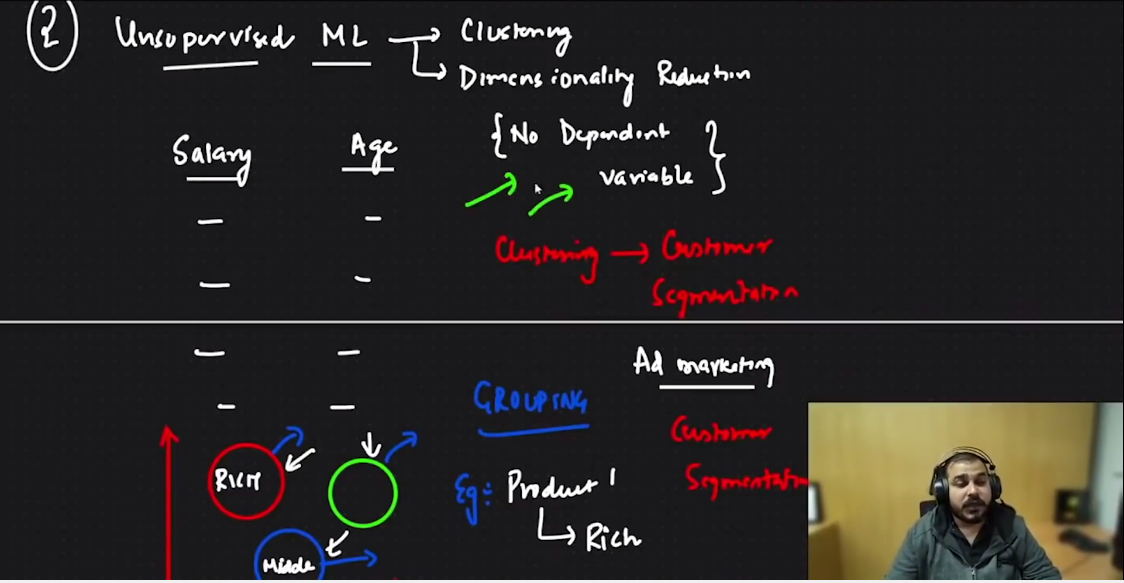 2 Unsupervised ML → Clustering
Dimensionality Reduction
Salary Age { No Dependent
variable }
Clustering → Customer
Segmentation
Ad marketing
GROUPING
Customer
RICH
Segmentation
Eg:- Product 1
Rich
Middle